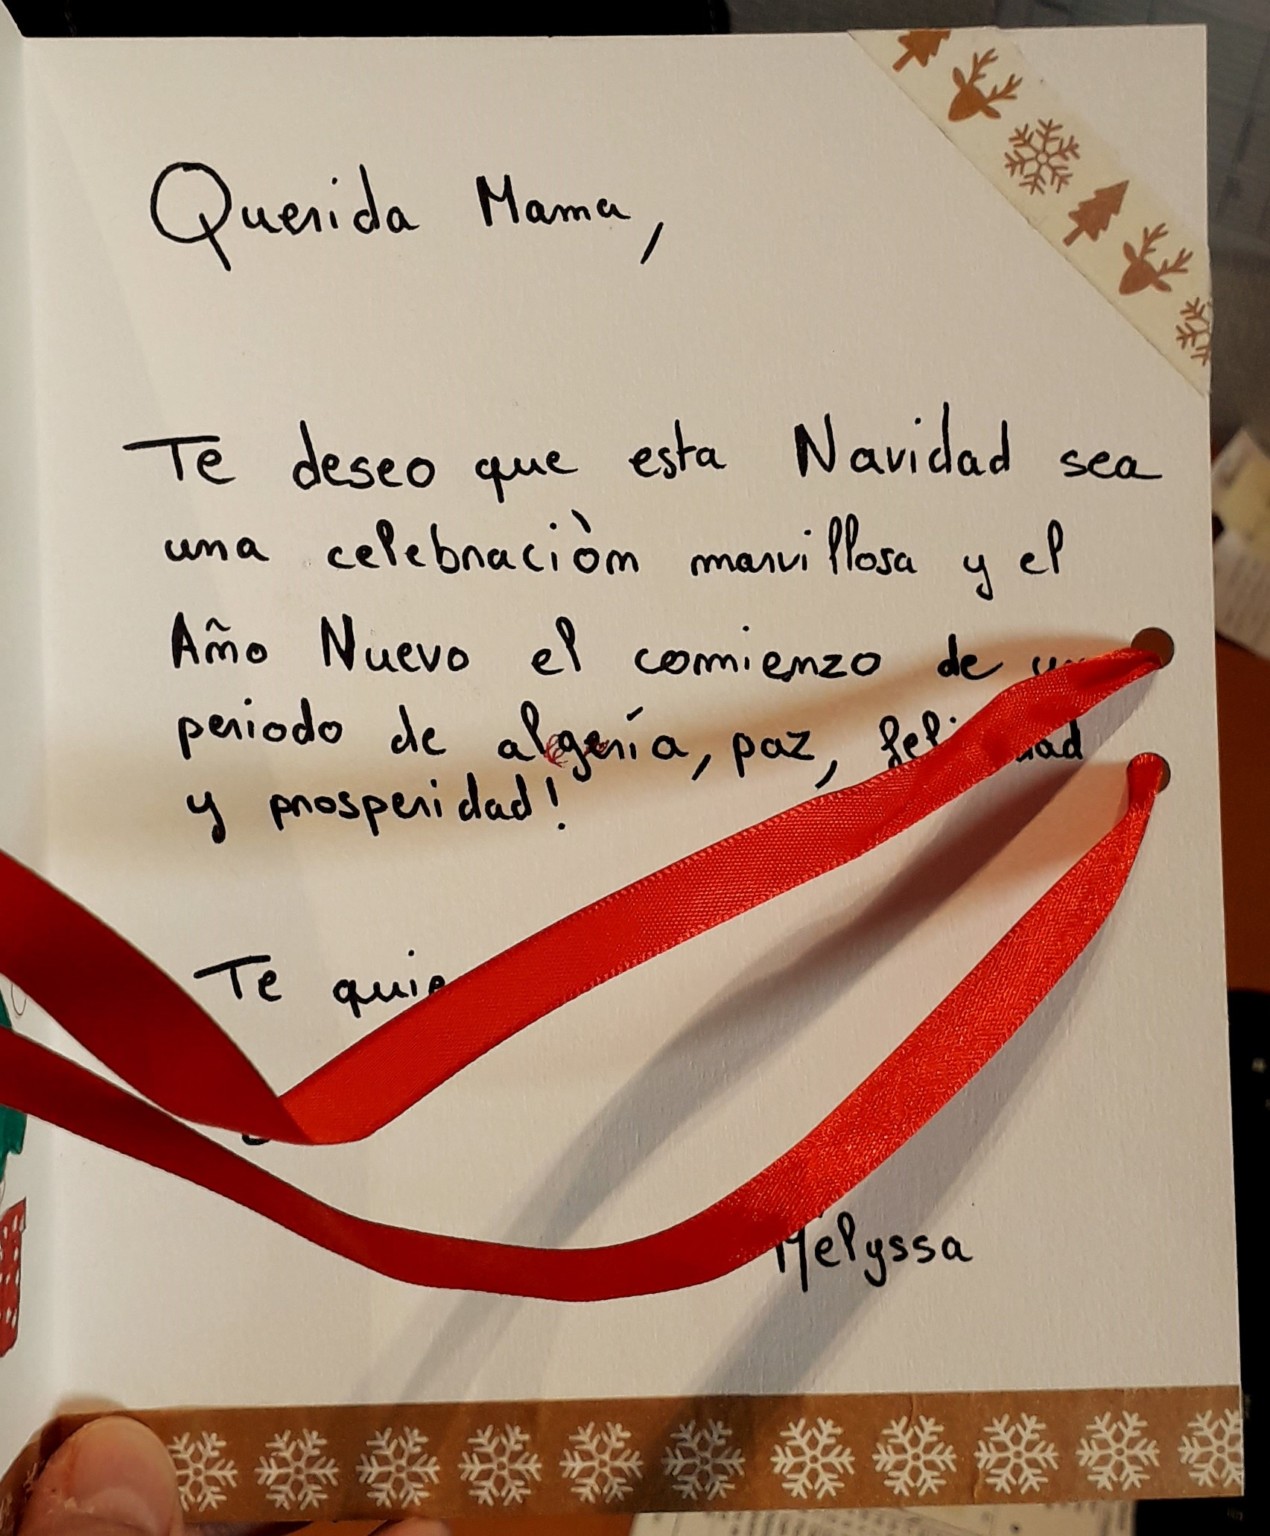 Querida Mama,
Te deseo que esta Navidad sea
una celebraciòn marvillosa y el
Año Nuevo el comienzo de
periodo de algería, paz,
y prosperidad!
Te
Mélyssa